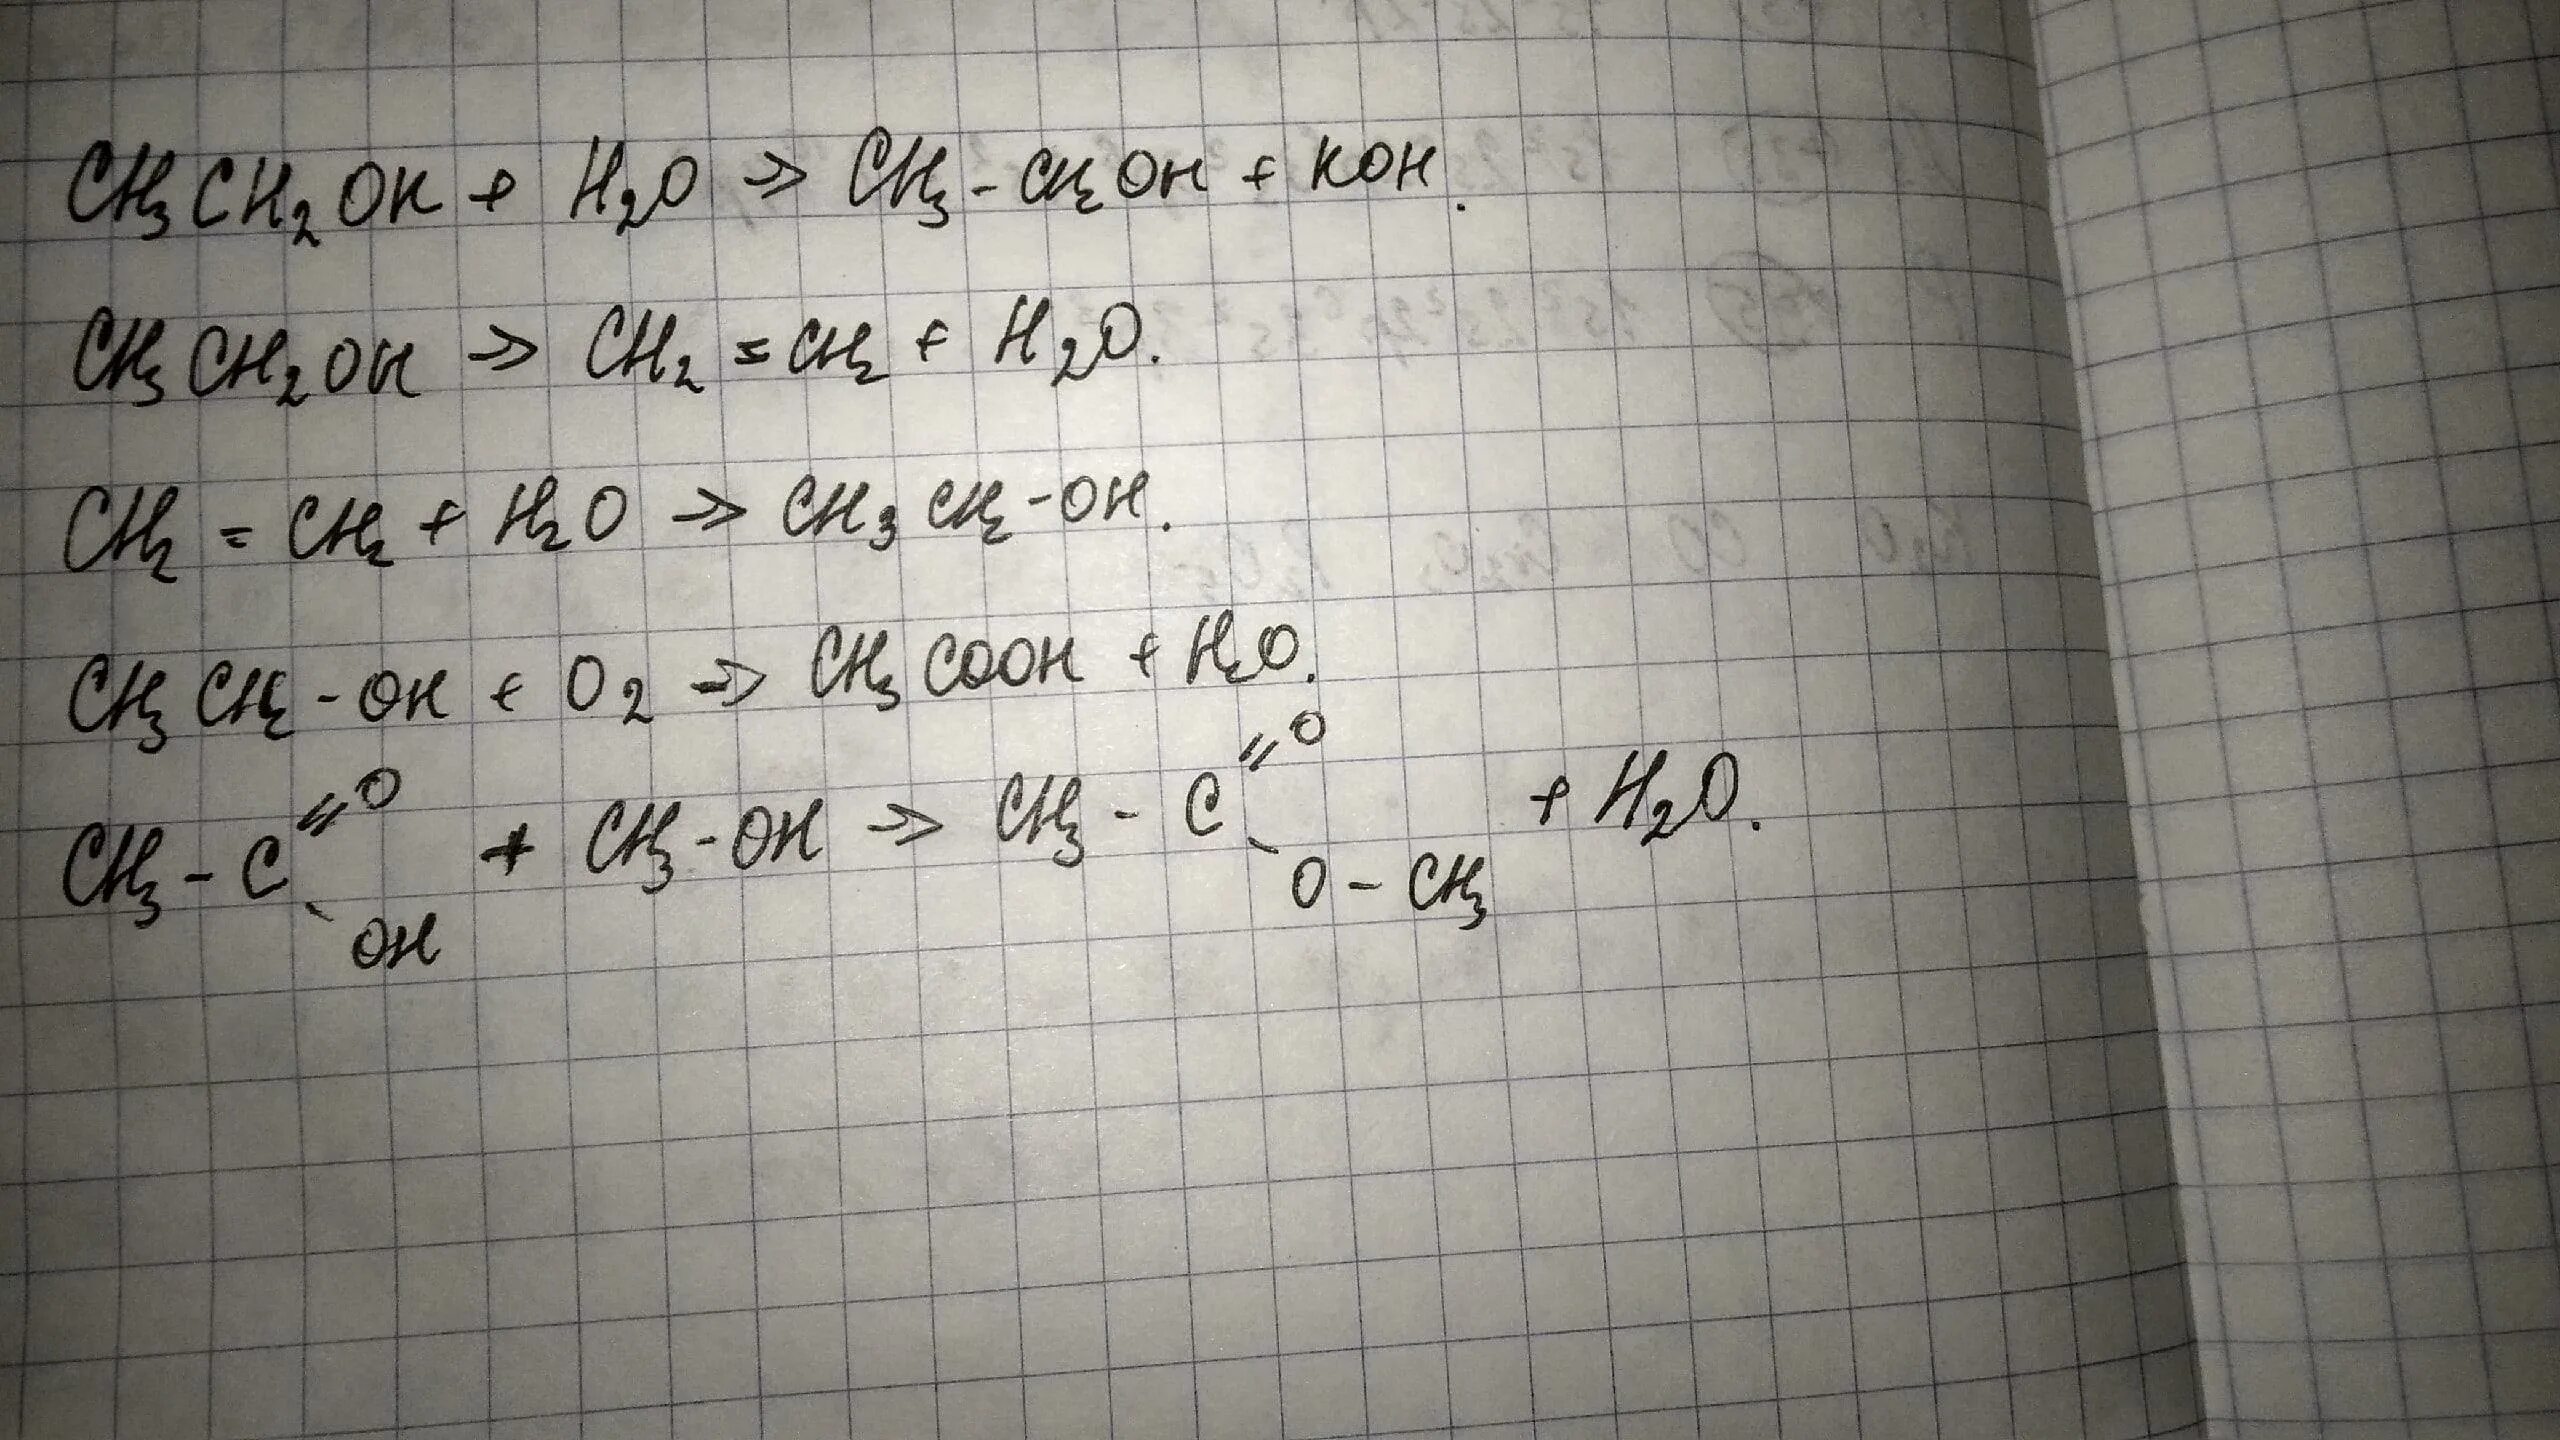 CH₃CH₂OK + H₂O → CH₃-CH₂OH + KOH.
CH₃CH₂OH → CH₂=CH₂ + H₂O.
CH₂=CH₂ + H₂O → CH₃CH₂-OH.
CH₃CH₂-OH + O₂ → CH₃COOH + H₂O.
CH₃-C(=O)-OH + CH₃-OH → CH₃-C(=O)-O-CH₃ + H₂O.